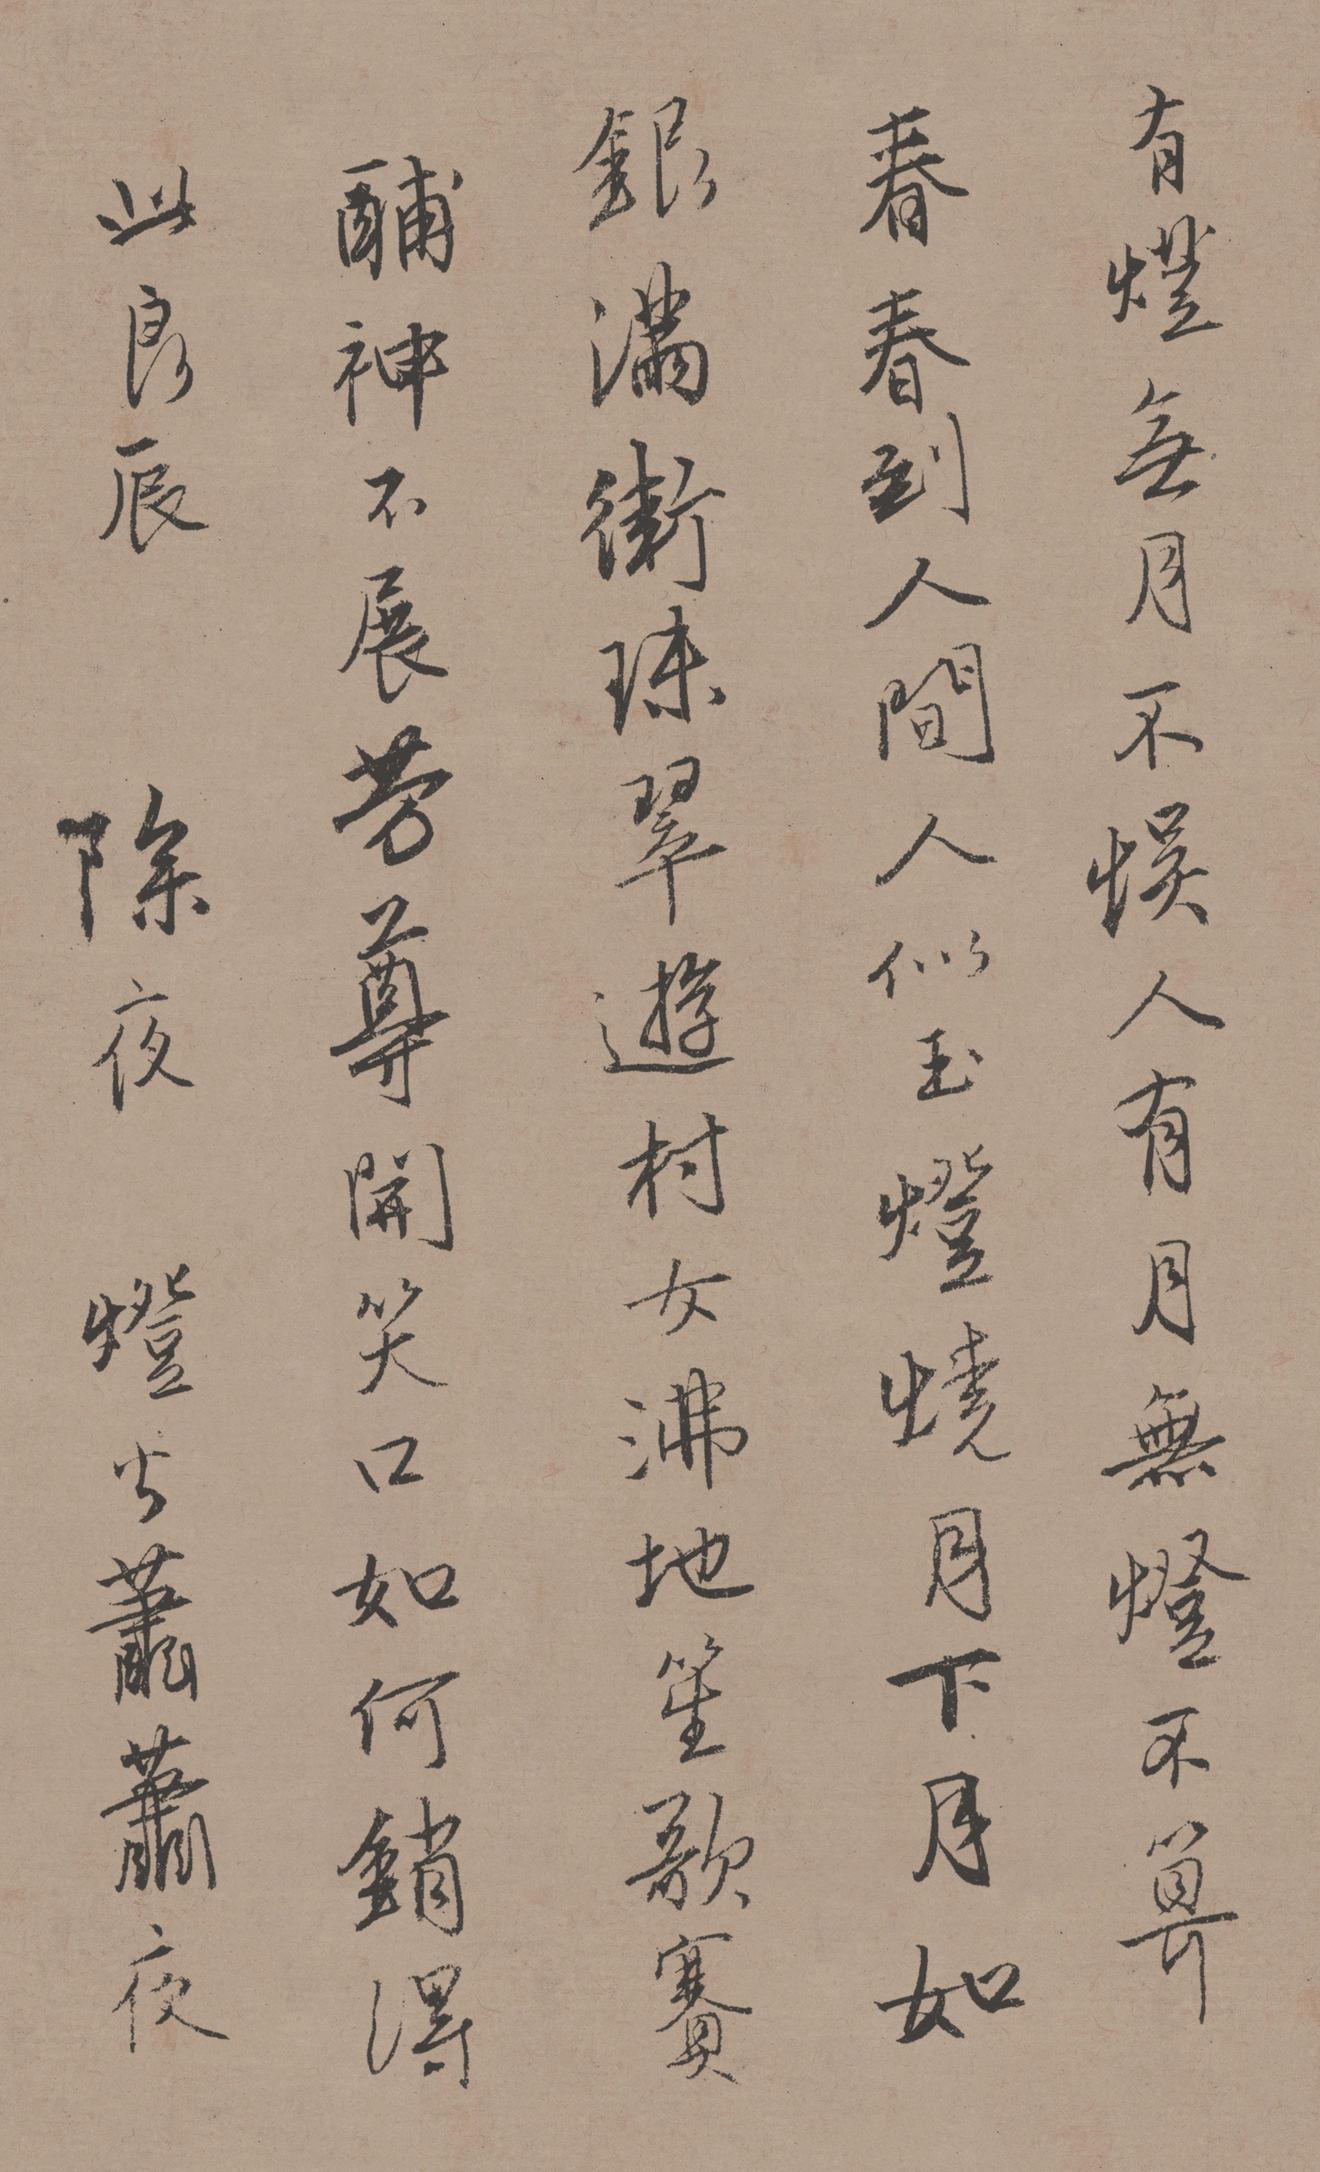 有燈無月不悞人有月無燈不算
春春到人間人似玉燈燒月下月如
銀滿街珠翠遊村女沸地笙歌賽
酺神不展芳尊開笑口如何銷得
此良辰 除夜 燈火蕭蕭夜